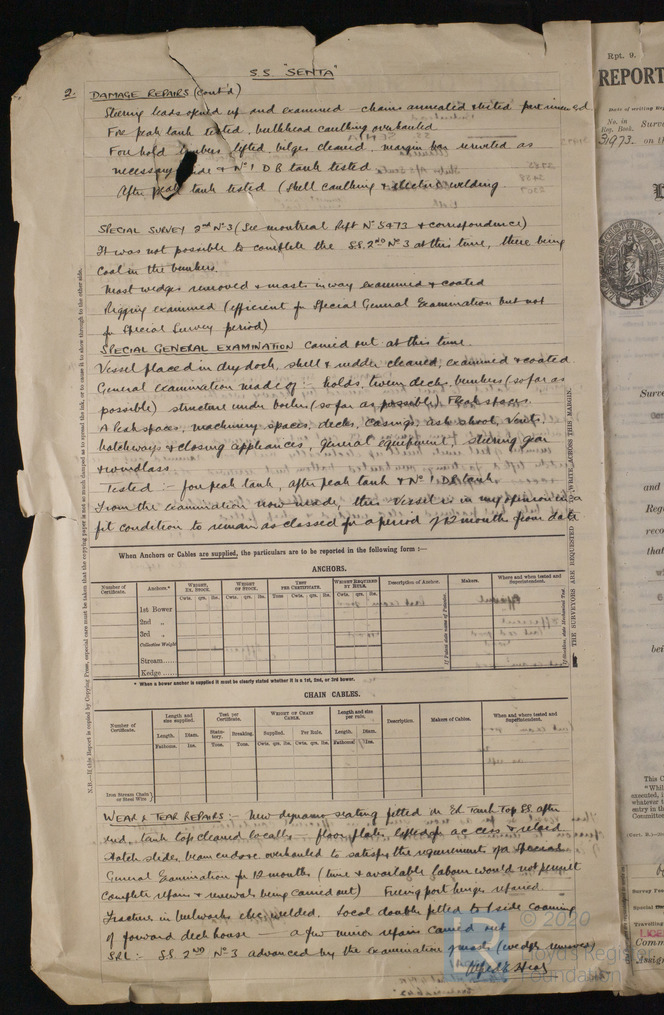 S.S. "SENTA"
2. DAMAGE REPAIRS (cont'd)
Steering leads opened up and examined - chains annealed & tested part renewed
Fore peak tank tested, bulkhead caulking overhauled
Fore hold timbers lifted bilges cleaned, margin bar reriveted as
necessary & No 1 D B tank tested
After peak tank tested (shell caulking & electric welding
SPECIAL SURVEY 2nd No 3 (See Montreal Rept No 5473 & correspondence)
It was not possible to complete the S.S. 2nd No 3 at this time, there being
coal in the bunkers.
Mast wedges removed & masts in way examined & coated
Rigging examined (efficient for Special General Examination but not
for Special Survey period)
SPECIAL GENERAL EXAMINATION carried out at this time.
Vessel placed in dry dock, shell & rudder cleaned, examined & coated
General examination made of :- holds, tween decks, bunkers (so far as
possible) structure under boilers (so far as possible), F Peak spaces
A Peak spaces, machinery spaces, decks, casings, ash shoot, vents,
hatchways & closing appliances, general equipment, steering gear
& windlass
Tested :- fore peak tank, after peak tank & No 1 DB tank
From the examination now made, this Vessel is in my opinion in a
fit condition to remain as classed for a period of 12 months from date
When Anchors or Cables are supplied, the particulars are to be reported in the following form :—
ANCHORS.
Number of Certificate. Anchors.* WEIGHT, EX. STOCK. WEIGHT OF STOCK. TEST PER CERTIFICATE. WEIGHT REQUIRED BY RULE. Description of Anchor. Makers. Where and when tested and Superintendent.
Cwts. qrs. lbs. Cwts. qrs. lbs. Tons Cwts. qrs. lbs. Cwts. qrs. lbs.
1st Bower
2nd „
3rd „
Collective Weight
Stream
Kedge
* When a bower anchor is supplied it must be clearly stated whether it is a 1st, 2nd, or 3rd bower.
CHAIN CABLES.
Number of Certificate. Length and size supplied. Test per Certificate. WEIGHT OF CHAIN CABLE. Length and size per rule. Description. Makers of Cables. Where and when tested and Superintendent.
Length. Diam. Statutory. Breaking. Supplied. Per Rule. Length. Diam.
Fathoms. Ins. Tons. Tons. Cwts. qrs. lbs. Cwts. qrs. lbs. Fathoms Ins.
Iron Stream Chain or Steel Wire
WEAR & TEAR REPAIRS :- New dynamo seating fitted on ER Tank Top PS after
end, tank top cleaned locally - floor plates lifted for access & relaid
Hatch slides, beams overhauled to satisfy the requirements of a Special
General Examination for 12 months (time & available labour would not permit
complete repairs & renewals being carried out) Freeing port hinges repaired
Fractures in bulwarks elec. welded. Local doubler fitted to side coaming
of forward deck house - a few minor repairs carried out
S.S. 2ND No 3 advanced by the examination of masts (wedges removed)
N.B.—If this Report is copied by Copying Press, especial care must be taken that the copying paper is not so much damped as to spread the ink, or to cause it to show through to the other side.
THE SURVEYORS ARE REQUESTED TO WRITE ACROSS THIS MARGIN.
© 2020
Lloyd's Register
Foundation
Rpt. 9.
REPORT
No. in Reg. Book.
31973.